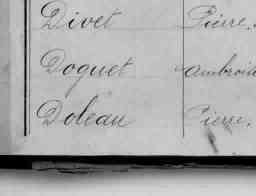 Divet Pierre.
Doguet Ambroise
Doleau Pierre.